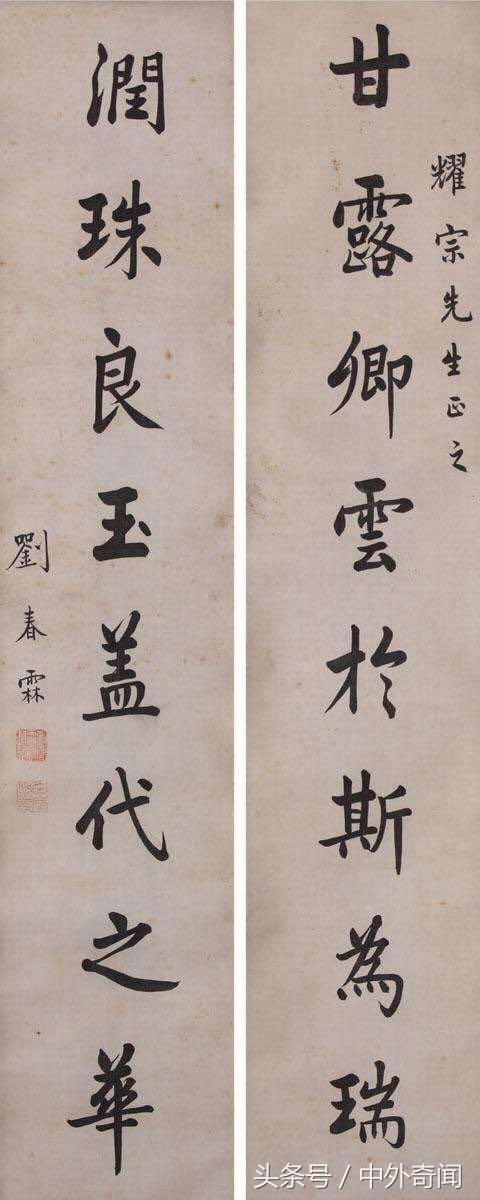 耀宗先生正之
甘露卿雲於斯為瑞
潤珠良玉盖代之華
劉春霖
头条号 / 中外奇闻